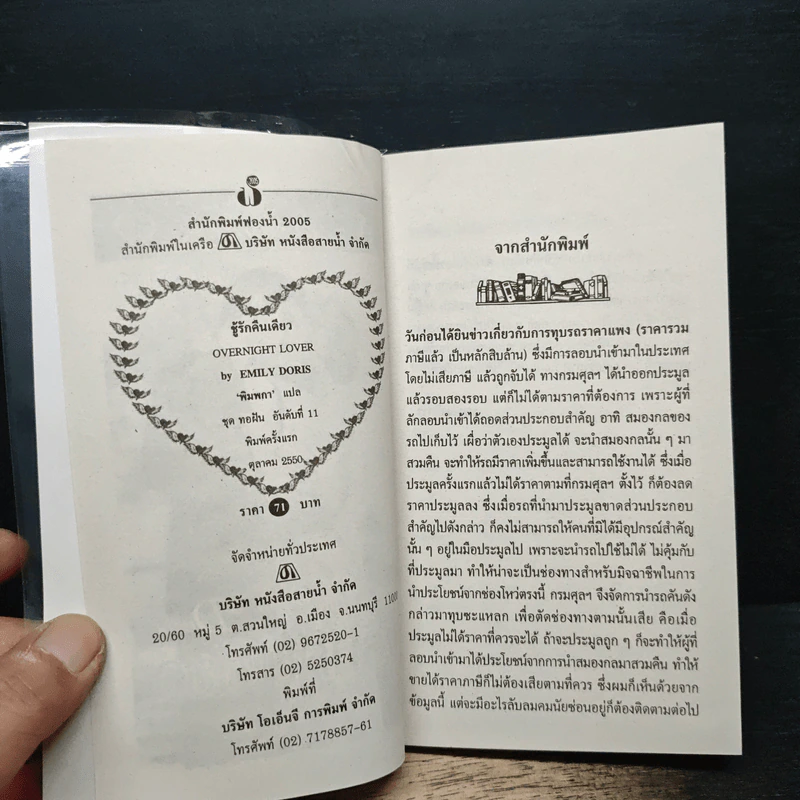 สำนักพิมพ์ฟองน้ำ 2005
สำนักพิมพ์ในเครือ บริษัท หนังสือสายน้ำ จำกัด
ชู้รักคืนเดียว
OVERNIGHT LOVER
by EMILY DORIS
'พิมพกา' แปล
ชุด ทอฝัน อันดับที่ 11
พิมพ์ครั้งแรก
ตุลาคม 2550
ราคา 71 บาท
จัดจำหน่ายทั่วประเทศ
บริษัท หนังสือสายน้ำ จำกัด
20/60 หมู่ 5 ต.สวนใหญ่ อ.เมือง จ.นนทบุรี 11000
โทรศัพท์ (02) 9672520-1
โทรสาร (02) 5250374
พิมพ์ที่
บริษัท โอเอ็นจี การพิมพ์ จำกัด
โทรศัพท์ (02) 7178857-61
จากสำนักพิมพ์
วันก่อนได้ยินข่าวเกี่ยวกับการทุบรถราคาแพง (ราคารวม
ภาษีแล้ว เป็นหลักสิบล้าน) ซึ่งมีการลอบนำเข้ามาในประเทศ
โดยไม่เสียภาษี แล้วถูกจับได้ ทางกรมศุลฯ ได้นำออกประมูล
แล้วรอบสองรอบ แต่ก็ไม่ได้ตามราคาที่ต้องการ เพราะผู้ที่
ลักลอบนำเข้าได้ถอดส่วนประกอบสำคัญ อาทิ สมองกลของ
รถไปเก็บไว้ เผื่อว่าตัวเองประมูลได้ จะนำสมองกลนั้น ๆ มา
สวมคืน จะทำให้รถมีราคาเพิ่มขึ้นและสามารถใช้งานได้ ซึ่งเมื่อ
ประมูลครั้งแรกแล้วไม่ได้ราคาตามที่กรมศุลฯ ตั้งไว้ ก็ต้องลด
ราคาประมูลลง ซึ่งเมื่อรถที่นำมาประมูลขาดส่วนประกอบ
สำคัญไปดังกล่าว ก็คงไม่สามารถให้คนที่มิได้มีอุปกรณ์สำคัญ
นั้น ๆ อยู่ในมือประมูลไป เพราะจะนำรถไปใช้ไม่ได้ ไม่คุ้มกับ
ที่ประมูลมา ทำให้น่าจะเป็นช่องทางสำหรับมิจฉาชีพในการ
นำประโยชน์จากช่องโหว่ตรงนี้ กรมศุลฯ จึงจัดการนำรถคันดัง
กล่าวมาทุบซะแหลก เพื่อตัดช่องทางตามนั้นเสีย คือเมื่อ
ประมูลไม่ได้ราคาที่ควรจะได้ ถ้าจะประมูลถูก ๆ ก็จะทำให้ผู้ที่
ลอบนำเข้ามาได้ประโยชน์จากการนำสมองกลมาสวมคืน ทำให้
ขายได้ราคาภาษีก็ไม่ต้องเสียตามที่ควร ซึ่งผมก็เห็นด้วยจาก
ข้อมูลนี้ แต่จะมีอะไรลับลมคมนัยซ่อนอยู่ก็ต้องติดตามต่อไป